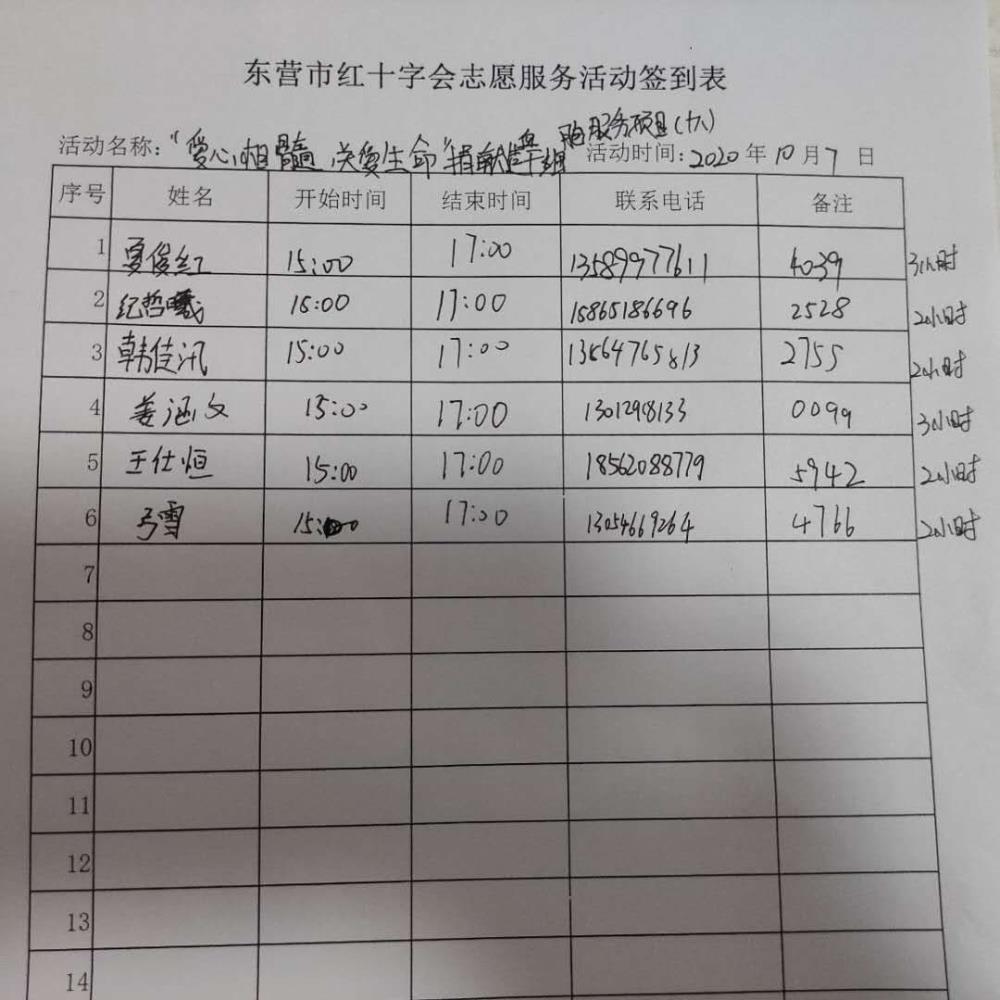 东营市红十字会志愿服务活动签到表
活动名称:"爱心相髓 关爱生命"捐献造血干细胞服务项目(十八) 活动时间:2020年10月7日
序号 姓名 开始时间 结束时间 联系电话 备注
1 夏俊红 15:00 17:00 13589977611 4039 3小时
2 纪哲曦 15:00 17:00 15865186696 2528 2小时
3 韩佳汛 15:00 17:00 13564765813 2755 2小时
4 姜涵文 15:00 17:00 1301298133 0099 3小时
5 王仕恒 15:00 17:00 18562088779 5942 2小时
6 弓雪 15:00 17:00 13054669264 4766 2小时
7
8
9
10
11
12
13
14